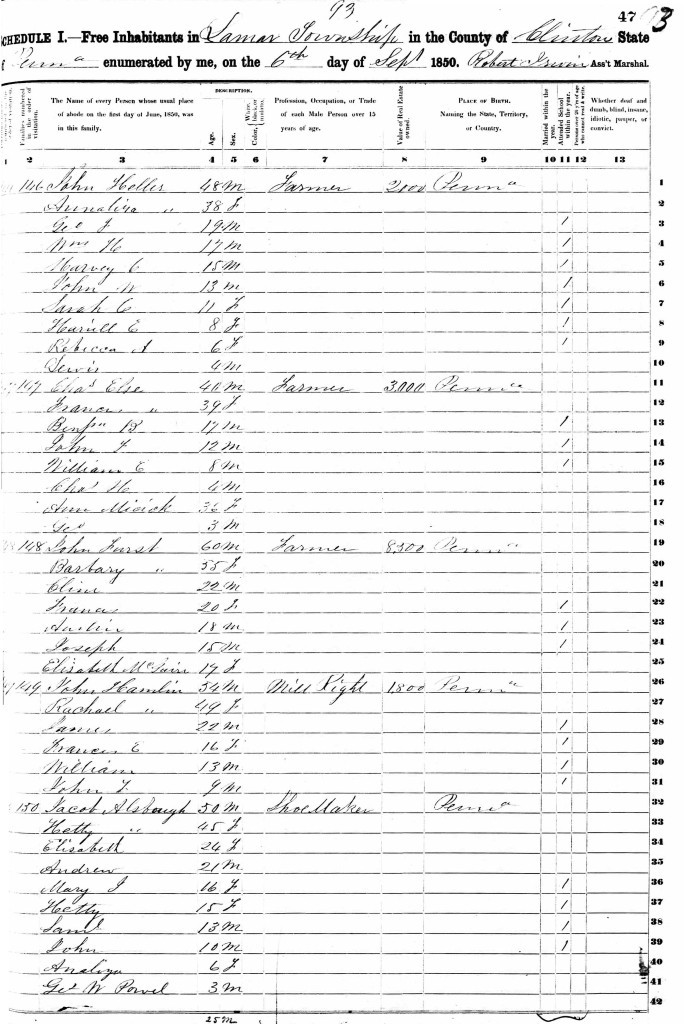 93
47 93
SCHEDULE I.—Free Inhabitants in Lamar Township in the County of Clinton State
of Penna enumerated by me, on the 6th day of Sept 1850. Robert Irwin Ass't Marshal.
DESCRIPTION.
The Name of every Person whose usual place of abode on the first day of June, 1850, was in this family.
Families numbered in the order of visitation.
Age.
Sex.
White, black, or mulatto.
Color,
Profession, Occupation, or Trade of each Male Person over 15 years of age.
Value of Real Estate owned.
PLACE OF BIRTH. Naming the State, Territory, or Country.
Married within the year.
Attended School within the year.
Persons over 20 y'rs of age who cannot read & write.
Whether deaf and dumb, blind, insane, idiotic, pauper, or convict.
1 2 3 4 5 6 7 8 9 10 11 12 13
146 John Heller 48 M Farmer 2000 Penna 1
Annaliza " 38 F 2
Geo F 19 M 1 3
Wm H 17 M 1 4
Harvey C 15 M 1 5
John W 13 M 1 6
Sarah C 11 F 1 7
Harrill E 8 F 1 8
Rebecca A 6 F 1 9
Lewis 4 M 10
147 Chas Else 40 M Farmer 3,000 Penna 11
Frances " 39 F 12
Benjn B 17 M 1 13
John F 12 M 1 14
William E 8 M 1 15
Chas H 4 M 16
Ann 36 F 17
Geo 3 M 18
148 John Furst 60 M Farmer 8500 Penna 19
Barbary " 55 F 20
Cline 22 M 21
Frances 20 F 1 22
Austin 18 M 1 23
Joseph 15 M 1 24
Elisabeth 19 F 25
149 John Hamlin 54 M Mill Right 1800 Penna 26
Rachael " 49 F 27
James 22 M 1 28
Frances E 16 F 1 29
William 13 M 1 30
John F 9 M 1 31
150 Jacob Alsbaugh 50 M Shoe Maker Penna 32
Hetty " 45 F 33
Elisabeth 24 F 34
Andrew 21 M 35
Mary J 16 F 1 36
Hetty 15 F 1 37
Saml 13 M 1 38
John 10 M 1 39
Analiza 6 F 40
Geo W Powel 3 M 41
42
25 M